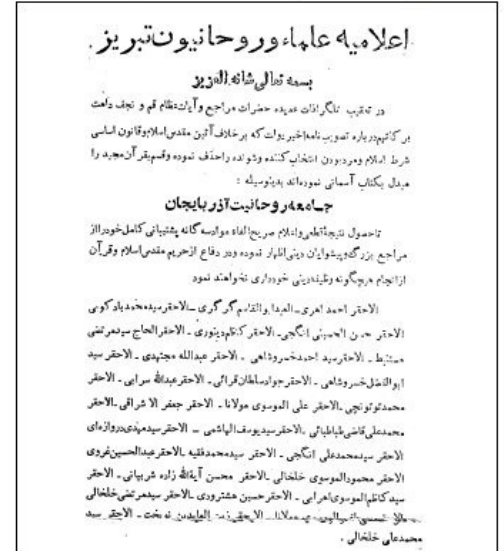 اعلامیه علماء و روحانیون تبریز
بسمه تعالی شانه العزیز
در تعقیب تلگرافات عدیده حضرات مراجع و آیات عظام قم و نجف دامت
برکاتهم درباره تصویب نامه اخیر دولت که برخلاف آئین مقدس اسلام و قانون اساسی
شرط اسلام و مرد بودن انتخاب کننده و شونده را حذف نموده و قسم بقرآن مجید را
مبدل بکتاب آسمانی نموده‌اند بدینوسیله :
جامعه روحانیت آذربایجان
تا حصول نتیجه قطعی و اعلام صریح الغاء مواد سه گانه پشتیبانی کامل خود را از
مراجع بزرگ و پیشوایان دینی اظهار نموده و در دفاع از حریم مقدس اسلام و قرآن
از انجام هرچگونه وظیفه دینی خودداری نخواهند نمود
الاحقر احمد اهری - العبد ابوالقاسم گرگری - الاحقر سید محمد بادکوبی
الاحقر حسن الحسینی انگجی - الاحقر کاظم دینوری - الاحقر الحاج سید مرتضی
مستنبط - الاحقر سید احمد خسروشاهی - الاحقر عبدالله مجتهدی - الاحقر سید
ابوالفضل خسروشاهی - الاحقر جواد سلطان قرائی - الاحقر عبدالله سرابی - الاحقر
محمد توتونچی - الاحقر علی الموسوی مولانا - الاحقر جعفر الاشراقی - الاحقر
محمد علی قاضی طباطبائی - الاحقر سید یوسف الهاشمی - الاحقر سید مهدی دروازه‌ای
الاحقر سید محمد علی انگجی - الاحقر سید محمد فقیه - الاحقر عبدالحسین غروی
الاحقر محمود الموسوی خلخالی - الاحقر محسن آیةالله زاده شربیانی - الاحقر
سید کاظم الموسوی اهرابی - الاحقر حسین هشترودی - الاحقر سید مرتضی خلخالی
مولانا - الاحقر زین العابدین - الاحقر سید
محمد علی خلخالی .